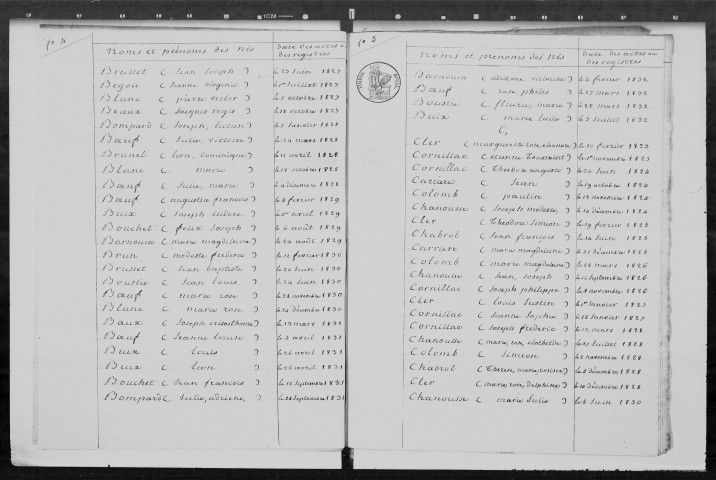 fo 4
Noms et prénoms des Nés
Date des actes ou des registres
Brusset ( Jean Joseph ) le 20 Juin 1827
Begou ( Jeanne virginie ) le 1er Juillet 1827
Blanc ( pierre victor ) le 7 octobre 1827
Beaux ( Jacques regis ) le 28 octobre 1827
Bompard ( Joseph, lucien ) le 7 Janvier 1828
Bœuf ( Julie victoire ) le 14 mars 1828
Brunel ( leon, dominique ) le 11 avril 1828
Blanc ( marie ) le 18 octobre 1828
Bœuf ( Julie, marie ) le 4 décembre 1828
Bœuf ( augustin francois ) le 8 fevrier 1829
Buix ( Joseph isidore ) le 1er avril 1829
Bouchet ( felix Joseph ) le 6 août 1829
Barnouin ( marie magdeleine ) le 24 août 1829
Brun ( modeste frederic ) le 11 fevrier 1830
Brusset ( Jean baptiste ) le 20 Juin 1830
Boustie ( Jean Louis ) le 24 Juin 1830
Bœuf ( marie rose ) le 28 novembre 1830
Blanc ( marie rose ) le 24 décembre 1830
Baux ( Joseph crisosthome ) le 13 mars 1831
Bœuf ( Jeanne louise ) le 3 avril 1831
Buix ( Louis ) le 26 avril 1831
Buix ( Léon ) le 26 avril 1831
Bouchet ( Jean francois ) le 12 septembre 1831
Bompard ( Julie, adrienne ) le 28 septembre 1831
fo 5
Noms et prénoms des Nés
Date des actes ou des registres
Barnouin ( victorine ) le 2 fevrier 1832
Bœuf ( rose philis ) le 22 mars 1832
Boustie ( fleurie, marie ) le 28 mars 1832
Buix ( marie lude ) le 3 Juillet 1832
C,
Cler ( marguerite rose, eleonore ) le 10 fevrier 1823
Cornillac ( etienne Toussaint ) le 1er novembre 1823
Cornillac ( Theodore auguste ) le 24 Juin 1824
Carriere ( Jean ) le 19 octobre 1824
Colomb ( paulin ) le 15 novembre 1824
Chanousse ( Joseph modeste ) le 14 décembre 1824
Cler ( Théodore Simeon ) le 19 fevrier 1825
Chabrol ( Jean francois ) le 14 Juin 1825
Carrare ( marie magdeleine ) le 31 décembre 1825
Colomb ( marie magdeleine ) le 28 mars 1826
Chanousse ( Jean, Joseph ) le 12 Septembre 1826
Cornillac ( Joseph philippe ) le 8 novembre 1826
Cler ( Louis Justin ) le 1er Janvier 1827
Cornillac ( Jeanne Sophie ) le 18 Janvier 1827
Cornillac ( Joseph frederic ) le 12 mars 1828
Chanousse ( marie, rose, clothilde ) le 27 Juillet 1828
Colomb ( Simeon ) le 2 novembre 1828
Chabrol ( Therese, marie, rosine ) le 8 décembre 1828
Cler ( marie, rose, delphine ) le 10 décembre 1828
Chanousse ( marie Julie ) le 6 Juin 1830